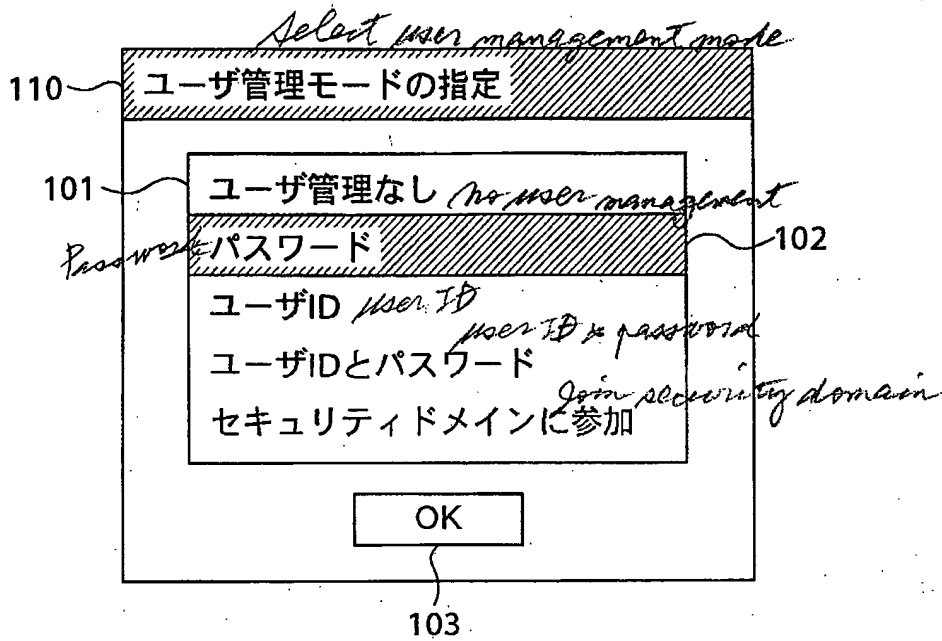 Select user management mode
110 ユーザ管理モードの指定
101 ユーザ管理なし no user management
Password パスワード 102
ユーザID user ID
user ID & password
ユーザIDとパスワード
Join security domain
セキュリティドメインに参加
OK
103